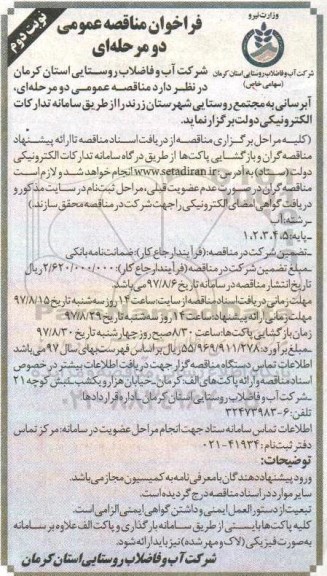 نوبت دوم
وزارت نیرو
شرکت آب و فاضلاب روستایی استان کرمان
(سهامی خاص)
فراخوان مناقصه عمومی
دو مرحله‌ای
شرکت آب و فاضلاب روستایی استان کرمان
در نظر دارد مناقصه عمومی دو مرحله‌ای،
آبرسانی به مجتمع روستایی شهرستان زرند را از طریق سامانه تدارکات
الکترونیکی دولت برگزار نماید.
(کلیه مراحل برگزاری مناقصه از دریافت اسناد مناقصه تا ارائه پیشنهاد
مناقصه گران و بازگشایی پاکت‌ها از طریق درگاه سامانه تدارکات الکترونیکی
دولت (ستاد) به آدرس www.setadiran.ir انجام خواهد شد و لازم است
مناقصه گران در صورت عدم عضویت قبلی، مراحل ثبت نام در سایت مذکور و
دریافت گواهی امضای الکترونیکی را جهت شرکت در مناقصه محقق سازند.)
ـ رشته: آب
ـ پایه: ۱،۲،۳،۴،۵
ـ تضمین شرکت در مناقصه: (فرآیند ارجاع کار): ضمانت نامه بانکی
ـ مبلغ تضمین شرکت در مناقصه (فرآیند ارجاع کار): ۲/۶۲۰/۰۰۰/۰۰۰ ریال
تاریخ انتشار مناقصه در سامانه تاریخ ۹۷/۸/۶ می باشد.
مهلت زمانی دریافت اسناد مناقصه از سایت: ساعت ۱۴ روز سه شنبه تاریخ ۹۷/۸/۱۵
مهلت زمانی ارائه پیشنهاد: ساعت ۱۴ روز سه شنبه تاریخ ۹۷/۸/۲۹
زمان بازگشایی پاکت‌ها: ساعت ۸:۳۰ صبح روز چهارشنبه تاریخ ۹۷/۸/۳۰
مبلغ برآورد: ۵۵/۹۶۹/۹۱۱/۲۷۸ ریال بر اساس فهرست بهای سال ۹۷ می باشد
اطلاعات تماس دستگاه مناقصه گزار جهت دریافت اطلاعات بیشتر در خصوص
اسناد مناقصه و ارائه پاکت‌های الف: کرمان ـ خیابان هزار و یکشب ـ نبش کوچه ۲۱
ـ شرکت آب و فاضلاب روستایی استان کرمان ـ اداره قراردادها
تلفن: ۶-۳۲۴۷۳۹۸۳
اطلاعات تماس سامانه ستاد جهت انجام مراحل عضویت در سامانه: مرکز تماس
دفتر ثبت نام: ۴۱۹۳۴-۰۲۱
توضیحات:
ورود پیشنهاد دهندگان با معرفی نامه به کمیسیون مجاز می باشد.
سایر موارد در اسناد مناقصه درج گردیده است.
تبعیت از دستورالعمل ایمنی و داشتن گواهی ایمنی الزامی است.
کلیه پاکت‌ها بایستی از طریق سامانه بارگذاری و پاکت الف علاوه بر سامانه
به صورت فیزیکی (لاک و مهر شده) نیز باید ارائه شود.
شرکت آب و فاضلاب روستایی استان کرمان